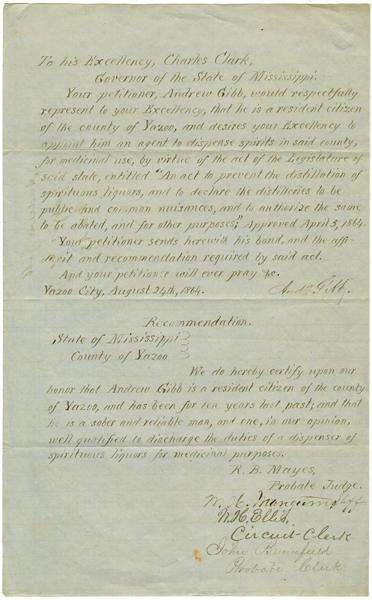 To his Excellency, Charles Clark,
Governor of the State of Mississippi.
Your petitioner, Andrew Gibb, would respectfully
represent to your Excellency, that he is a resident citizen
of the county of Yazoo, and desires your Excellency to
appoint him an agent to dispense spirits in said county,
for medicinal use, by virtue of the act of the Legislature of
said state, entitled "An act to prevent the distillation of
spirituous liquors, and to declare the distilleries to be
public and common nuisances, and to authorize the same
to be abated, and for other purposes;" Approved April 5, 1864.
Your petitioner sends herewith his bond, and the affi-
davit and recommendation required by said act.
And your petitioner will ever pray &c.
Yazoo City, August 24th, 1864. Andw Gibb.
Recommendation.
State of Mississippi
County of Yazoo
We do hereby certify upon our
honor that Andrew Gibb is a resident citizen of the county
of Yazoo, and has been for ten years last past; and that
he is a sober and reliable man, and one, in our opinion,
well qualified to discharge the duties of a dispenser of
spirituous liquors for medicinal purposes.
R. B. Mayes,
Probate Judge.
W. H. Mangum Shff
Ellis,
Circuit-Clerk
John
Probate Clerk